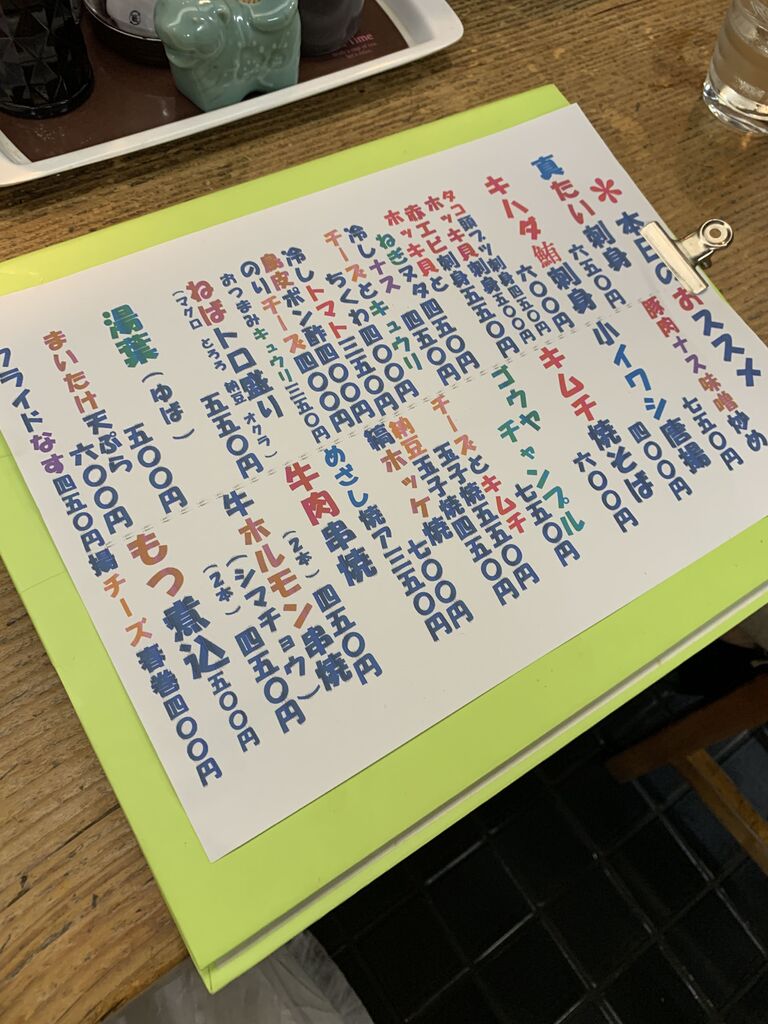 ＊本日のおススメ
真たい刺身 六五〇円
キハダ鮪刺身 六〇〇円
タコ頭ブツ刺身 四五〇円
ホッキ貝刺身 五五〇円
赤エビと
ホッキ貝 四五〇円
ねぎヌタ 四五〇円
冷しナスキュウリ 四〇〇円
チーズとちくわ 三五〇円
冷しトマト 四〇〇円
鳥皮ポン酢 四〇〇円
のりチーズ 三五〇円
おつまみキュウリ
ねばトロ盛り 五五〇円
(マグロ とろろ 納豆 オクラ)
湯葉(ゆば) 五〇〇円
まいたけ天ぷら 六〇〇円
フライドなす 四五〇円
豚肉ナス味噌炒め 七五〇円
小イワシ唐揚 四〇〇円
キムチ焼そば 六〇〇円
ゴウヤチャンプル 七五〇円
チーズとキムチ
玉子焼 五五〇円
納豆玉子焼 四五〇円
縞ホッケ焼 七〇〇円
めざし焼
牛肉串焼 (2本) 四五〇円
牛ホルモン串焼
(シマチョウ)
(2本) 四五〇円
もつ煮込 五〇〇円
揚チーズ春巻 四〇〇円
Time